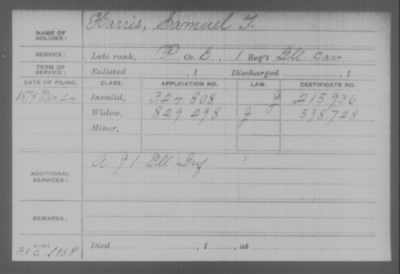 NAME OF SOLDIER: Harris, Samuel T.
SERVICE: Late rank, P Co. E, 1 Reg't Ill Cav
TERM OF SERVICE: Enlisted , 1 Discharged , 1
DATE OF FILING. CLASS. APPLICATION NO. LAW. CERTIFICATE NO.
Invalid, 324.808 J 215.936
Widow, 829.298 J 598.723
Minor,
ADDITIONAL SERVICES: A 91 Ill Inf
REMARKS:
Died , 1 , at